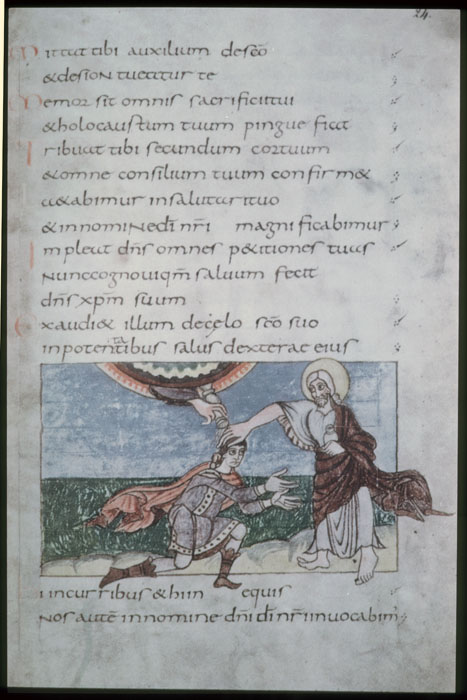 24.
Mittat tibi auxilium desc̄o
&desion tueatur te
Memor sit omnis sacrificii tui
&holocaustum tuum pingue fiat
Tribuat tibi secundum cor tuum
&omne consilium tuum confirm&
Lætabimur insalutari tuo
&innomine dī nr̄i magnificabimur
Impleat dn̄s omnes p&itiones tuas
Nunc cognovi qm̄ salvum fecit
dn̄s xp̄m suum
Exaudi& illum decęlo sc̄o suo
inpotentatibus salus dexterae eius
hi incurribus &hi in equis
Nos autē innomine dn̄i dī nr̄i invocabim᷒